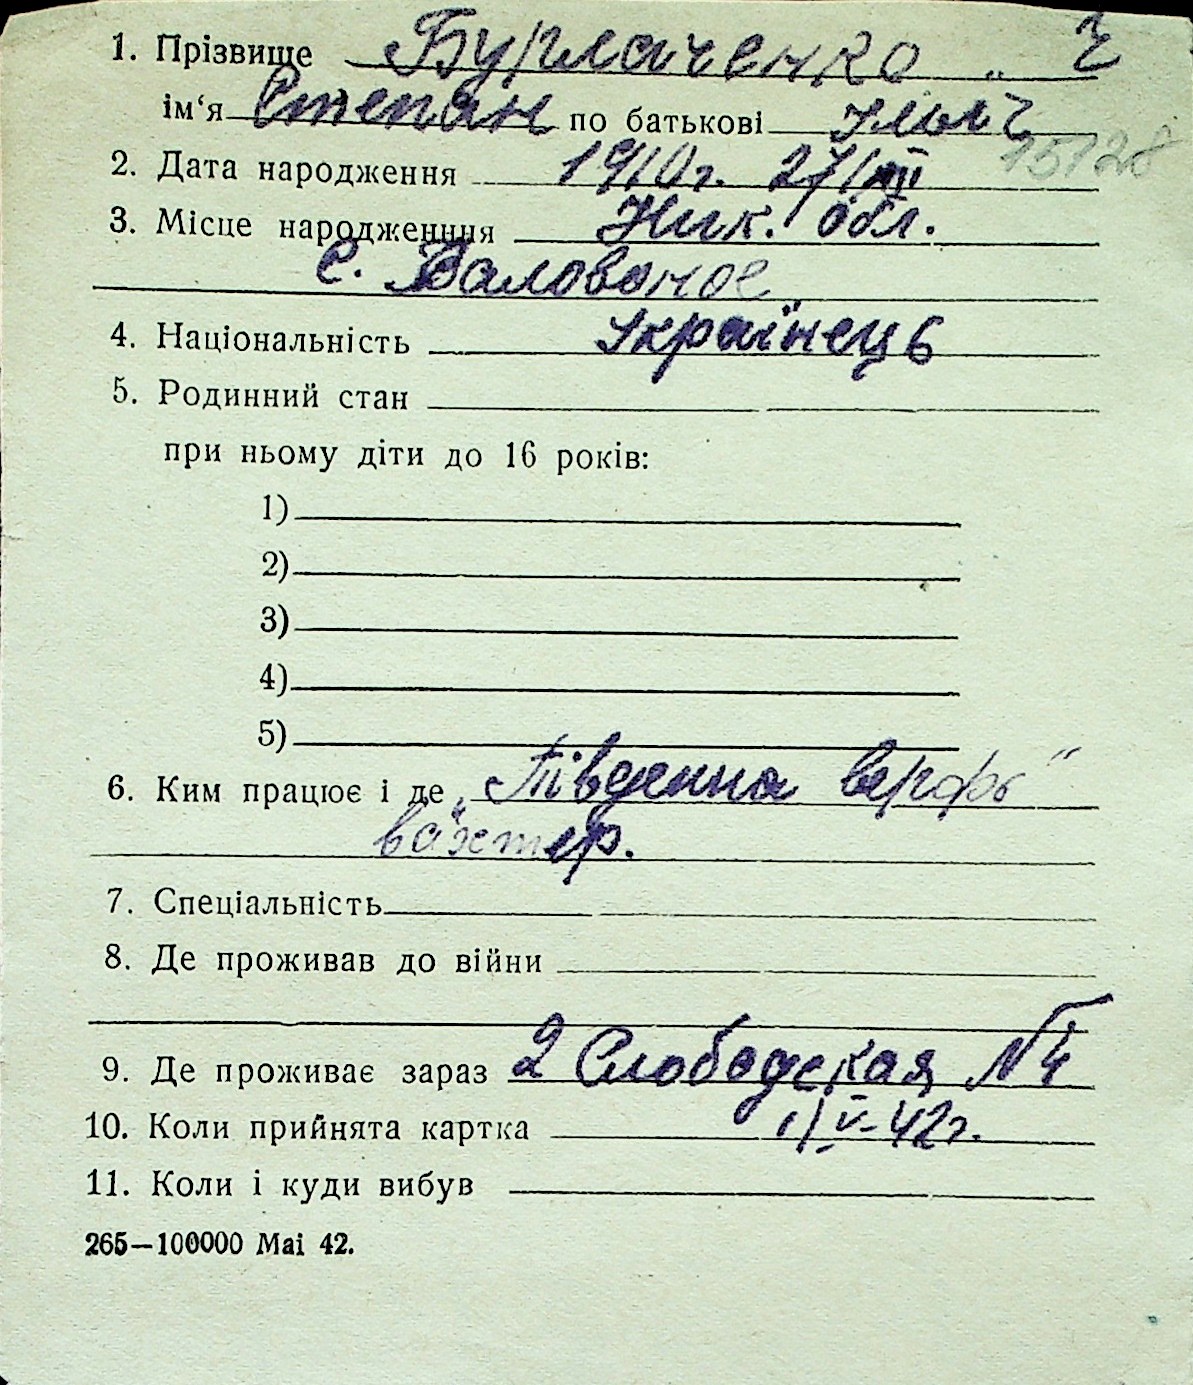 1. Прізвище Бурлаченко „ Ч
ім‘я Степан по батькові Ільїч
15128
2. Дата народження 1910г. 27/XII
3. Місце народженння Ник. обл.
с. Баловоное
4. Національність Українець
5. Родинний стан
при ньому діти до 16 років:
1)
2)
3)
4)
5)
6. Ким працює і де „Південна верфь"
вахтер.
7. Спеціальність
8. Де проживав до війни
9. Де проживає зараз 2 Слободская №4
10. Коли прийнята картка 1/V-42г.
11. Коли і куди вибув
265—100000 Mai 42.